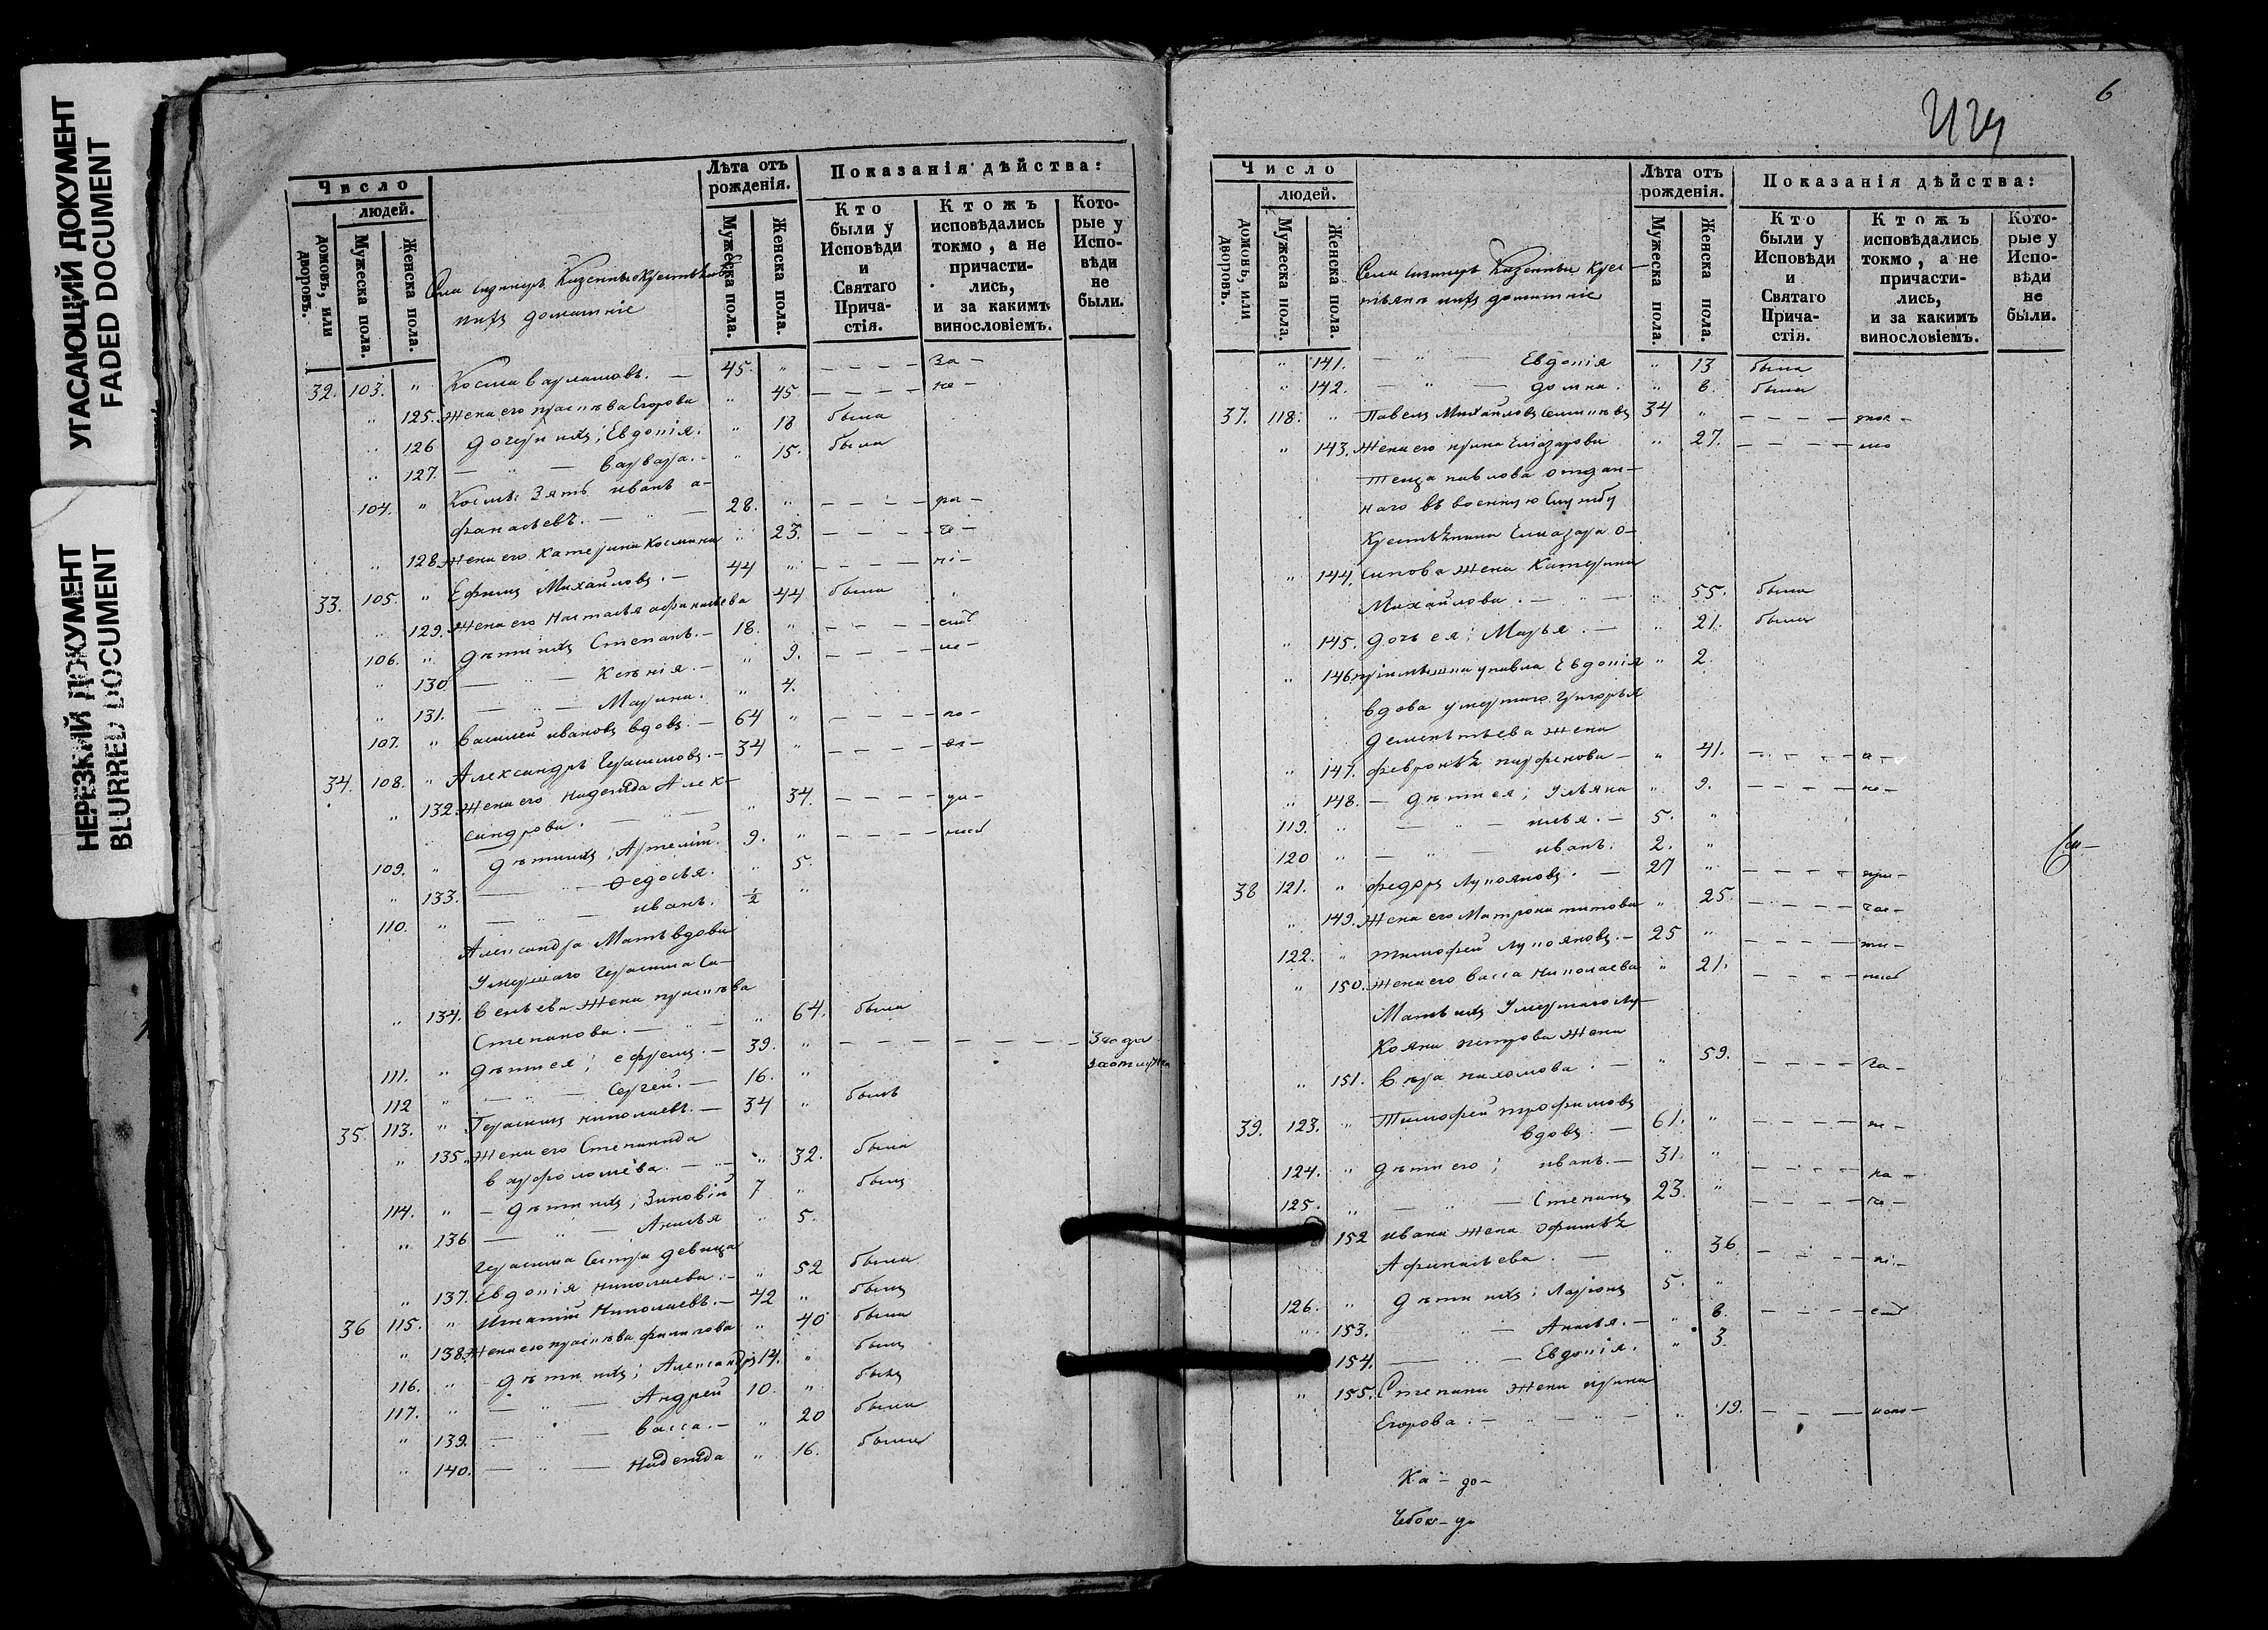 УГАСАЮЩИЙ ДОКУМЕНТ
FADED DOCUMENT
НЕРЕЗКИЙ ДОКУМЕНТ
BLURRED DOCUMENT
Число
людей.
домовъ, или дворовъ.
Мужеска пола.
Женска пола.
Лѣта отъ рожденія.
Мужеска пола.
Женска пола.
Показанія дѣйства:
Кто были у Исповѣди и Святаго Прича-стія.
Ктожъ исповѣдались токмо, а не причасти-лись, и за какимъ винословіемъ.
Кото-рые у Испо-вѣди не были.
Села
ихъ домашніе
32. 103. " Косма Варламовъ. — 45. " – – – – за –
" 125. Жена его Егорова " 45. – – – – не –
" 126 дочери ихъ; Евдокія. " 18 была
" 127. — " — Варвара. – " 15. была
104. " Космы Зять иванъ а–
фанасьевъ. — " — 28. " – – – – ра –
" 128. Жена его Катерина Космина " 23. – – – –
33. 105. " Ефимъ Михайловъ. – 44 " – – – – ні –
" 129. Жена его Наталья афанасьева " 44 была
106. " дѣти ихъ Степанъ. – 18. " – – – – емъ
" 130 — " — Ксенія. – " 9. – – – – не –
" 131. — " — Марина. " 4.
107. " Василей ивановъ вдовъ. – 64 " – – – – по –
34. 108. " Александръ Герасимовъ. – 34 " – – – –
" 132. Жена его надежда Алек–
сандрова. — " — " 34. – – – –
109. " дѣти ихъ; Артемій. 9. " – – – –
" 133. — " — Федосья. " 5.
110. " — " — иванъ. ½ "
Александра Мать вдова
Умершаго Герасима Са–
" 134. вельева Жена
Степанова. — " — " 64. была
111. " дѣти ея; ефремъ. – 39. " – – – – – – 3 года
112 " — " — Сергей. – 16. " былъ
35. 113. " Герасимъ николаевъ. – 34 "
" 135. Жена его Степанида
варфоломѣева. — " — " 32. была
114. " – дѣти ихъ; Зиновій 7 " былъ
" 136 — " — Анисья " 5.
Герасима Сестра девица
" 137. Евдокія николаева. – " 52 была
36 115. " Игнатій Николаевъ. – 42 " былъ
" 138. Жена его филипова " 40 была
116. " – дѣти ихъ; Александръ 14. " былъ
117. " — " — Андрей 10. " былъ
" 139. — " — васса. – " 20 была
" 140. — " — надежда " 16. была
6
Число
людей.
домовъ, или дворовъ.
Мужеска пола.
Женска пола.
Лѣта отъ рожденія.
Мужеска пола.
Женска пола.
Показанія дѣйства:
Кто были у Исповѣди и Святаго Прича-стія.
Ктожъ исповѣдались токмо, а не причасти-лись, и за какимъ винословіемъ.
Кото-рые у Испо-вѣди не были.
Села
ихъ домашніе
" 141. — " — Евдокія " 13 была
" 142. — " — домна. " 8. была
37. 118. " Павелъ Михайловъ 34 " – – – –
" 143. Жена его ирина Елиазарова " 27. – – – –
Теща павлова отдан–
наго въ военную Службу
Крестьянина Елиазара о–
" 144. сипова жена Катерина
Михайлова. — " — " 55. была
" 145. дочь ея; Марья. — " 21. была
" 146. у павла Евдокія " 2.
вдова умершаго Григорья
дементьева жена
" 147. февронья парфенова – " 41. – – – –
" 148. – дѣти ея; Ульяна " 9. – – – – не –
119. " — " — илья. – 5. "
120 " — " — иванъ. 2. "
38 121. " федоръ Лукояновъ. – 27 " – – – – при –
" 149. Жена его Матрона титова " 25. – – – – час –
122. " тимофей Лукояновъ. – 25 " – – – – ти –
" 150. Жена его васса николаева " 21. – – – –
Мать ихъ Умершаго Лу–
кояна петрова Жена
" 151. вѣра пахомова. — " 59. – – – – за –
39. 123. " Тимофей трофимовъ
вдовъ. — 61. " – – – – не –
124. " дѣти его; иванъ. – 31. " – – – –
125. " — " — Степанъ 23. " – – – –
152 ивана жена
Афанасьева. — " 36. – – – – ні –
126. " дѣти ихъ; Ларіонъ 5. "
" 153. " — Анисья. – " 8. – – – – емъ
154. — " — Евдокія. " 3.
" 155. Степана Жена ирина
Егорова. – " — " – " 19. – – – –